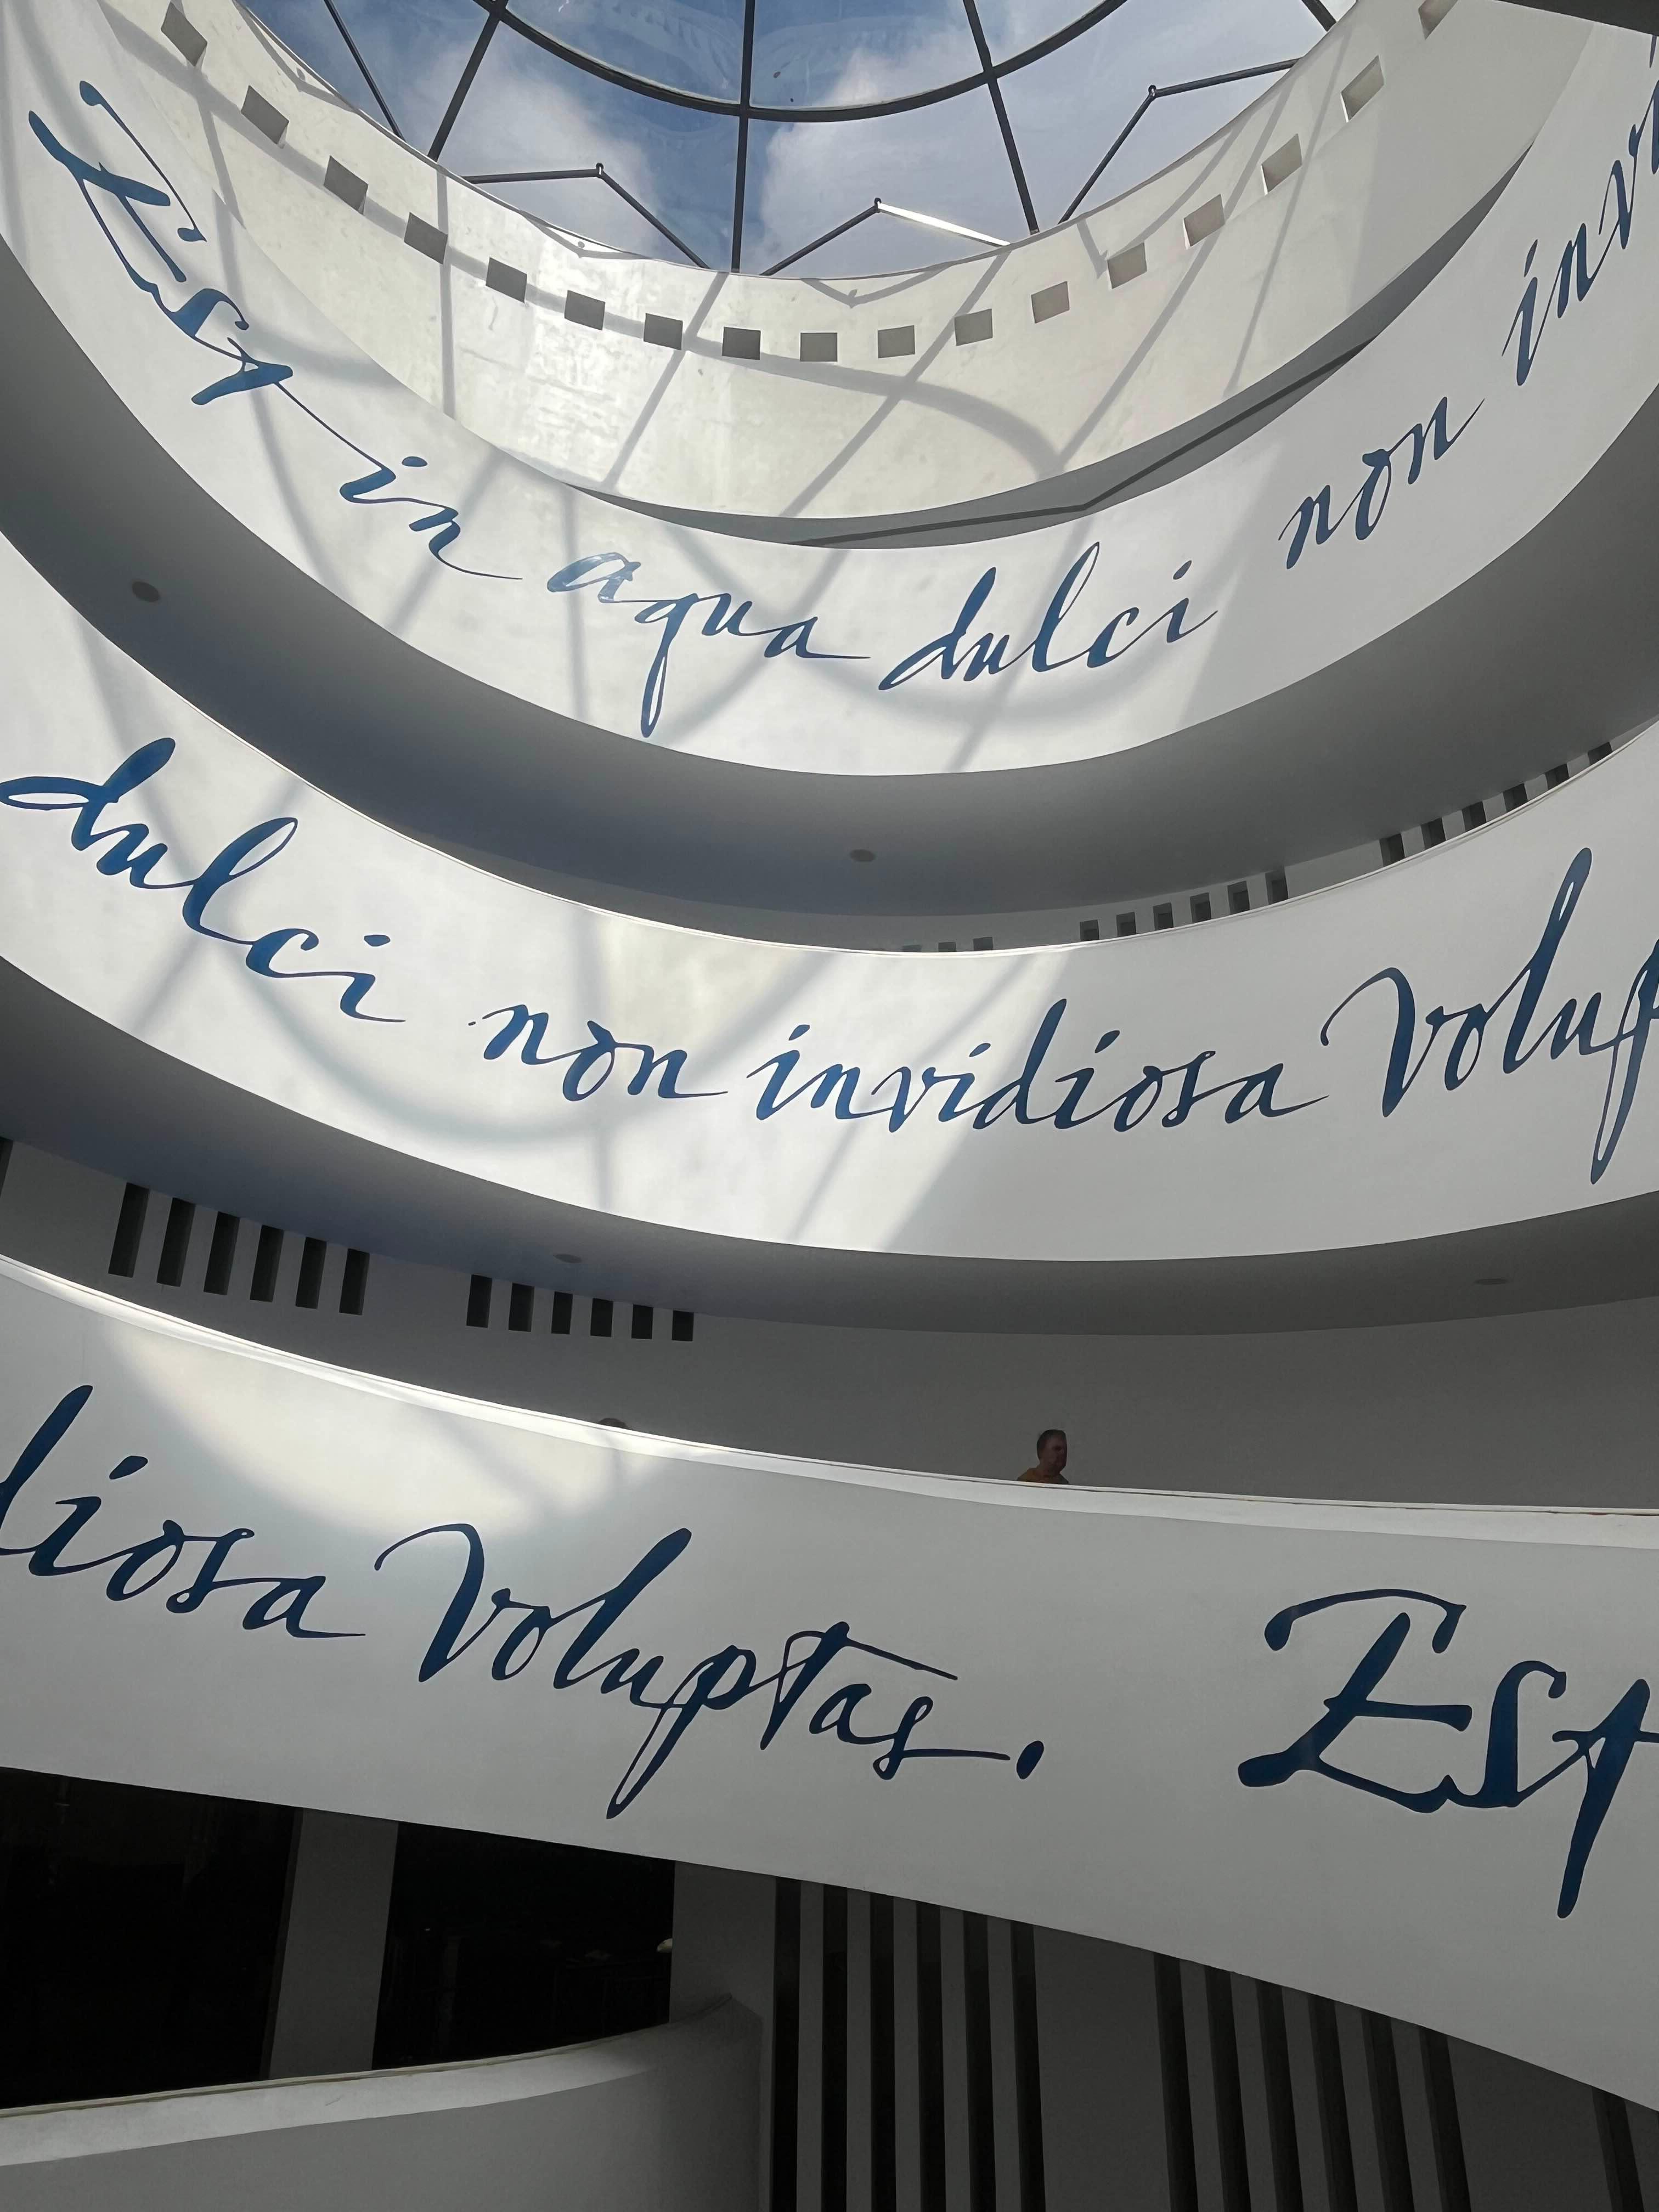 Est in aqua dulci non invi
dulci non invidiosa Volup
diosa Voluptas. Est